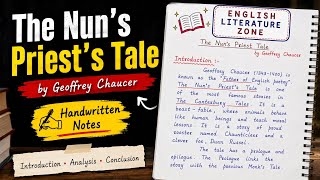 The Nun's
Priest's Tale
by Geoffrey Chaucer
Handwritten
Notes
Introduction • Analysis • Conclusion
ENGLISH
LITERATURE
ZONE
The Nun's Priest Tale
by Geoffrey Chaucer
Introduction:-
Geoffrey Chaucer (1343-1400) is
known as the "Father of English poetry"
The Nun's Priest's Tale is one
of the most famous stories in
The Canterbury Tales. It is a
beast-fable, where animals behave
like human beings and teach moral
lessons. It is a story of proud
rooster named Chaunticleer and a
clever fox, Daun Russel.
The tale has a prologue and
epilogue. The Prologue links the
story with the previous Monk's Tale